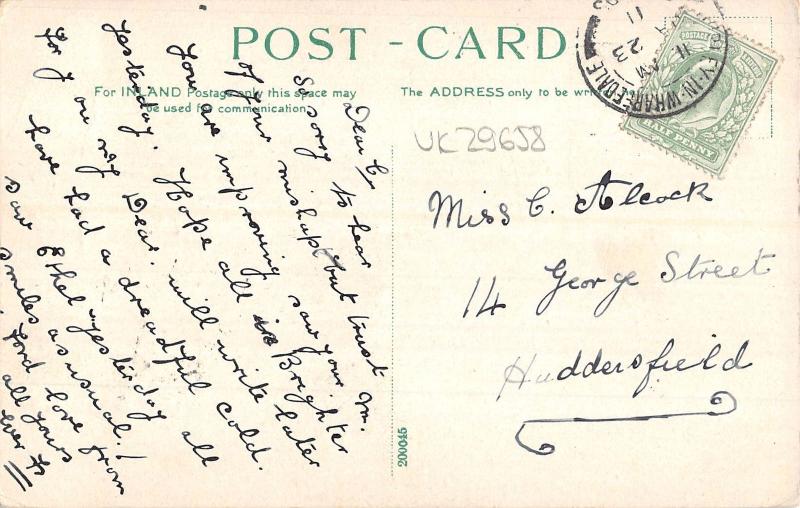 POST - CARD
For INLAND Postage only this space may
be used for communication.
The ADDRESS only to be
Dear C,
So sorry to hear
of your mishap but trust
you are improving saw your M.
yesterday. Hope all is Brighter
for J on my Dear. will write later
have had a dreadful cold.
Saw Ethel yesterday all
smiles as usual!
Ford love from
all yours
ever
UK29658
Miss C. Alcock
14 George Street
Huddersfield
200045
EY-IN-WHARFEDALE
11
23
11
POSTAGE
HALF PENNY